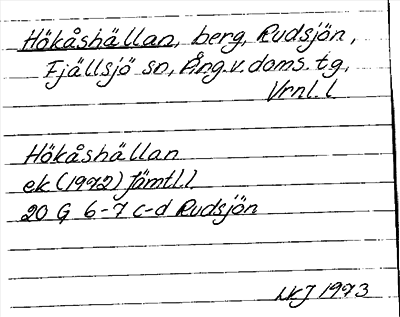 Hökåshällan, berg, Rudsjön,
Fjällsjö sn, Ång.v.doms.tg,
Vrnl.l
Hökåshällan
ek (1972) Jämtl.l
20 G 6-7 c-d Rudsjön
1973